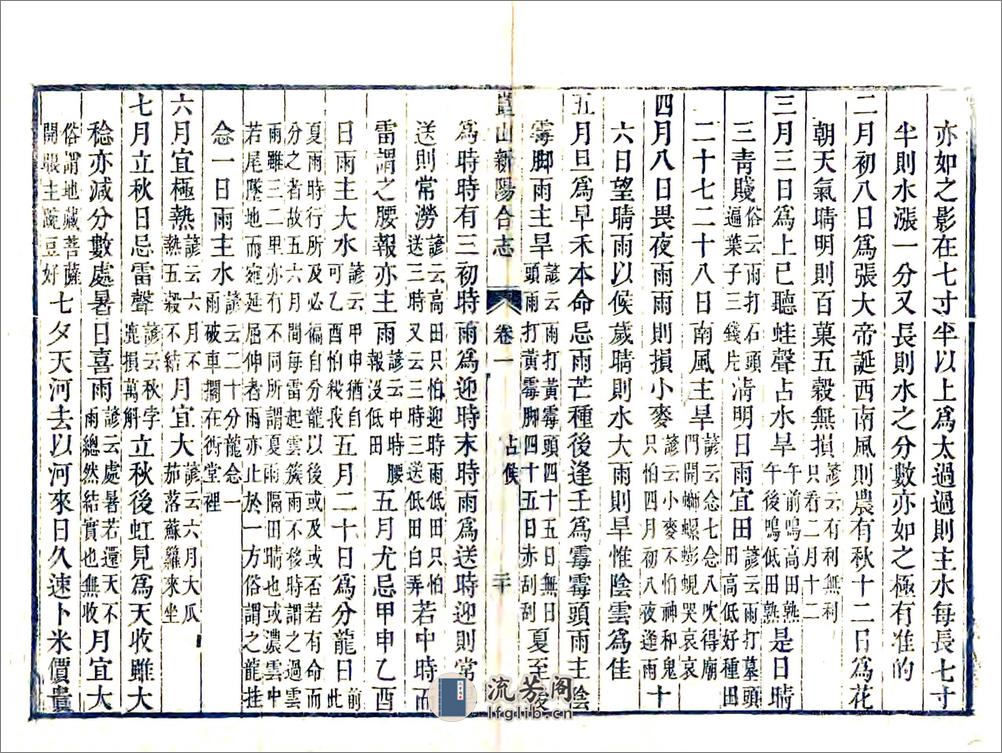 亦如之影在七寸半以上爲太過過則主水每長七寸
半則水漲一分又長則水之分數亦如之極有准的
二月初八日爲張大帝誕西南風則農有秋十二日爲花
朝天氣晴明則百菓五穀無損諺云有利無利只看二月十二
三月三日爲上巳聽蛙聲占水旱午前鳴高田熟午後鳴低田熟是日晴
三靑賤俗云雨打石頭遍葉子三錢片淸明日雨宜田諺云雨打墓頭田高低好種田
二十七二十八日南風主旱諺云念七念八吹得廟門開螄螺彭蜆哭哀哀
四月八日畏夜雨雨則損小麥諺云小麥不怕神和鬼只怕四月初八夜逢雨十
六日望晴雨以候歲晴則水大雨則旱惟陰雲爲佳
五月旦爲旱禾本命忌雨芒種後逢壬爲霉霉頭雨主陰
霉脚雨主旱諺云雨打黃霉頭四十五日無日頭雨打黃霉脚四十五日赤刮刮夏至後
崑山新陽合志
卷一
占候
三十
爲時時有三初時雨爲迎時末時雨爲送時迎則常
送則常澇諺云高田只怕迎時雨低田只怕送三時又云三時三送低田白弄若中時而
雷謂之腰報亦主雨諺云中時腰報沒低田五月尤忌甲申乙酉
日雨主大水諺云甲申猶自可乙酉怕殺我五月二十日爲分龍日前此
夏雨時行所及必徧自分龍以後或及或否若有命而
分之者故五六月間每雷起雲簇雨不移時謂之過雲
雨雖三二里亦有不同所謂夏雨隔田晴也或濃雲中
若尾墜地而宛延屈伸者雨亦止於一方俗謂之龍挂
念一日雨主水諺云二十分龍念一雨破車擱在衖堂裡
六月宜極熱諺云六月不熱五穀不結月宜大諺云六月大瓜茄落蘇籮來坐
七月立秋日忌雷聲諺云秋字鹿損萬斛立秋後虹見爲天收雖大
稔亦減分數處暑日喜雨諺云處暑若還天不雨總然結實也無收月宜大
俗謂地藏菩薩開眼主蔬豆好七夕天河去以河來日久速卜米價貴
流芳阁
lfglib.cn